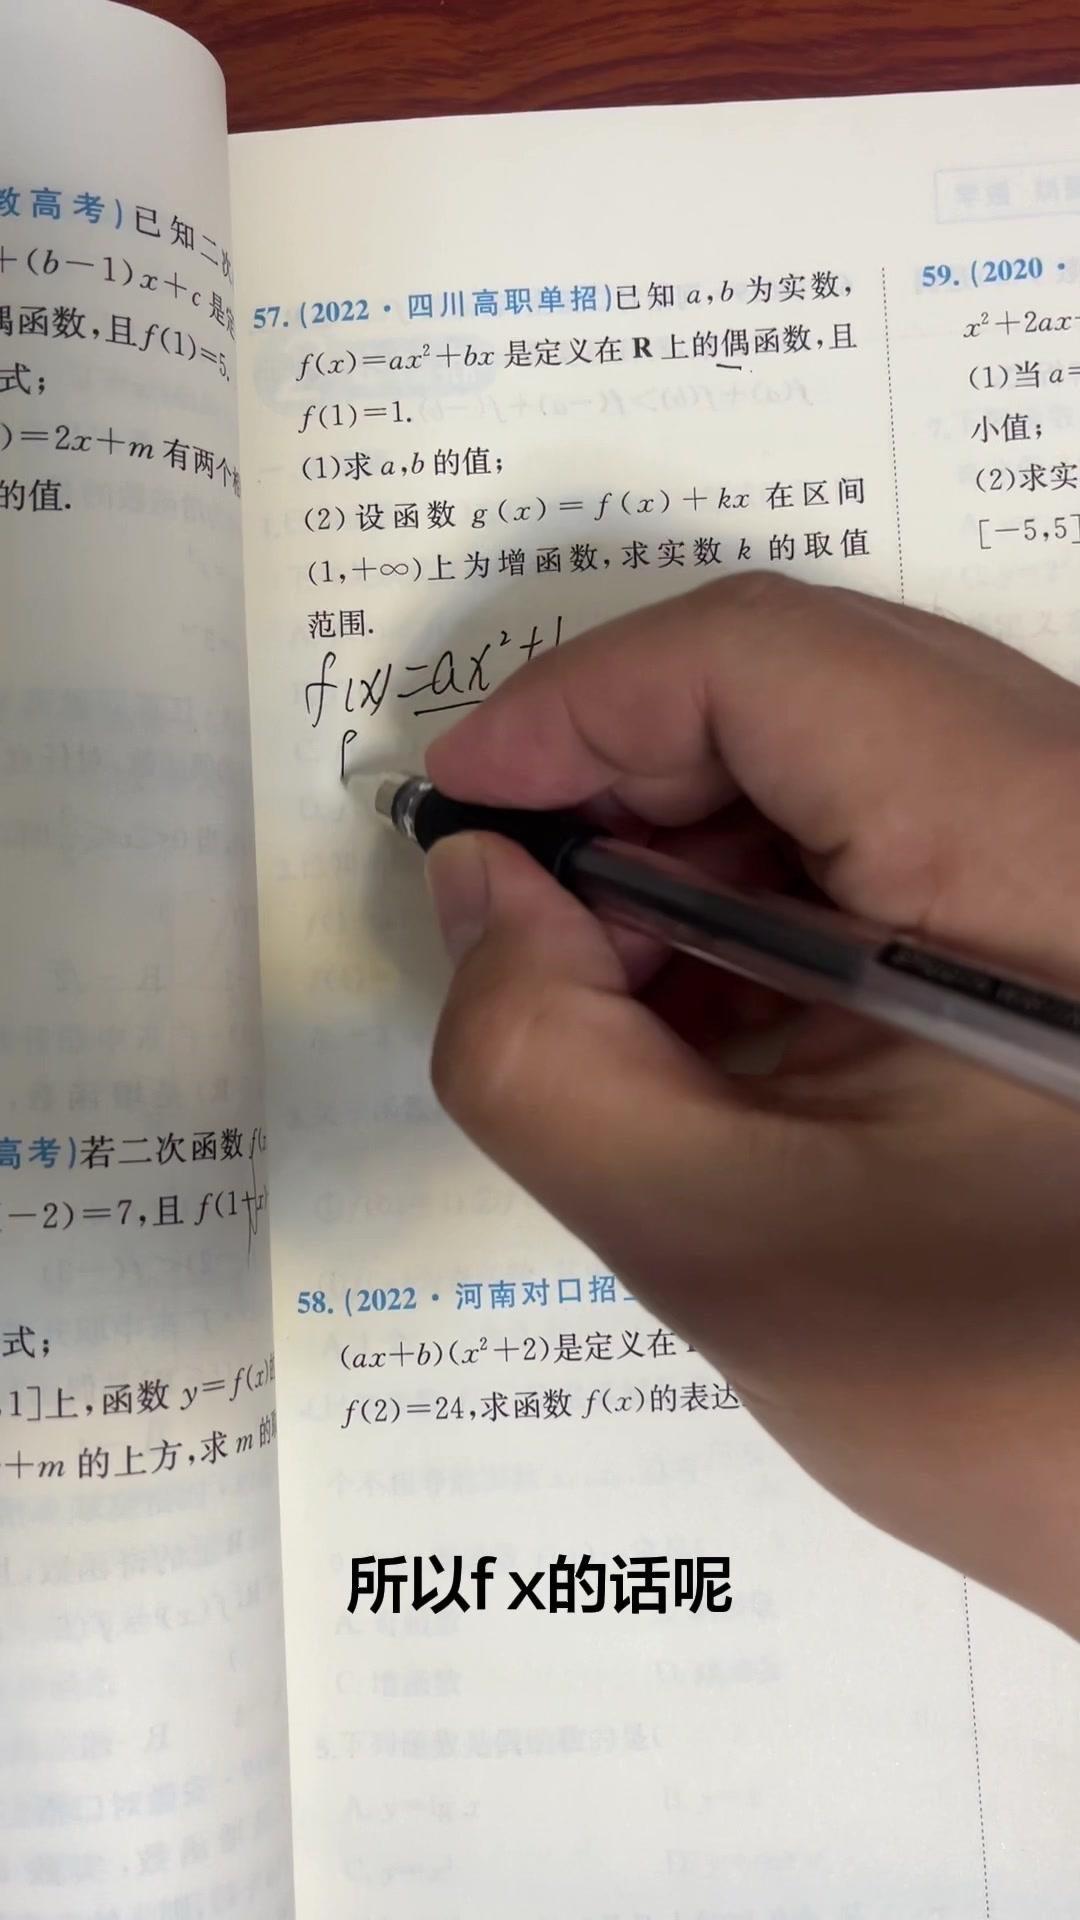 教高考)已知二次
+(b-1)x+c是定
偶函数,且f(1)=5.
式;
)=2x+m有两个相
的值.
高考)若二次函数f(x
(-2)=7,且f(1+x)
式;
,1]上,函数y=f(x)的
+m的上方,求m的取
57.(2022·四川高职单招)已知a,b为实数,
f(x)=ax²+bx是定义在R上的偶函数,且
f(1)=1.
(1)求a,b的值;
(2)设函数g(x)=f(x)+kx在区间
(1,+∞)上为增函数,求实数k的取值
范围.
f(x)=ax²+
f
58.(2022·河南对口招
(ax+b)(x²+2)是定义在
f(2)=24,求函数f(x)的表达
59.(2020·
x²+2ax
(1)当a=
小值;
(2)求实
[-5,5]
所以f x的话呢